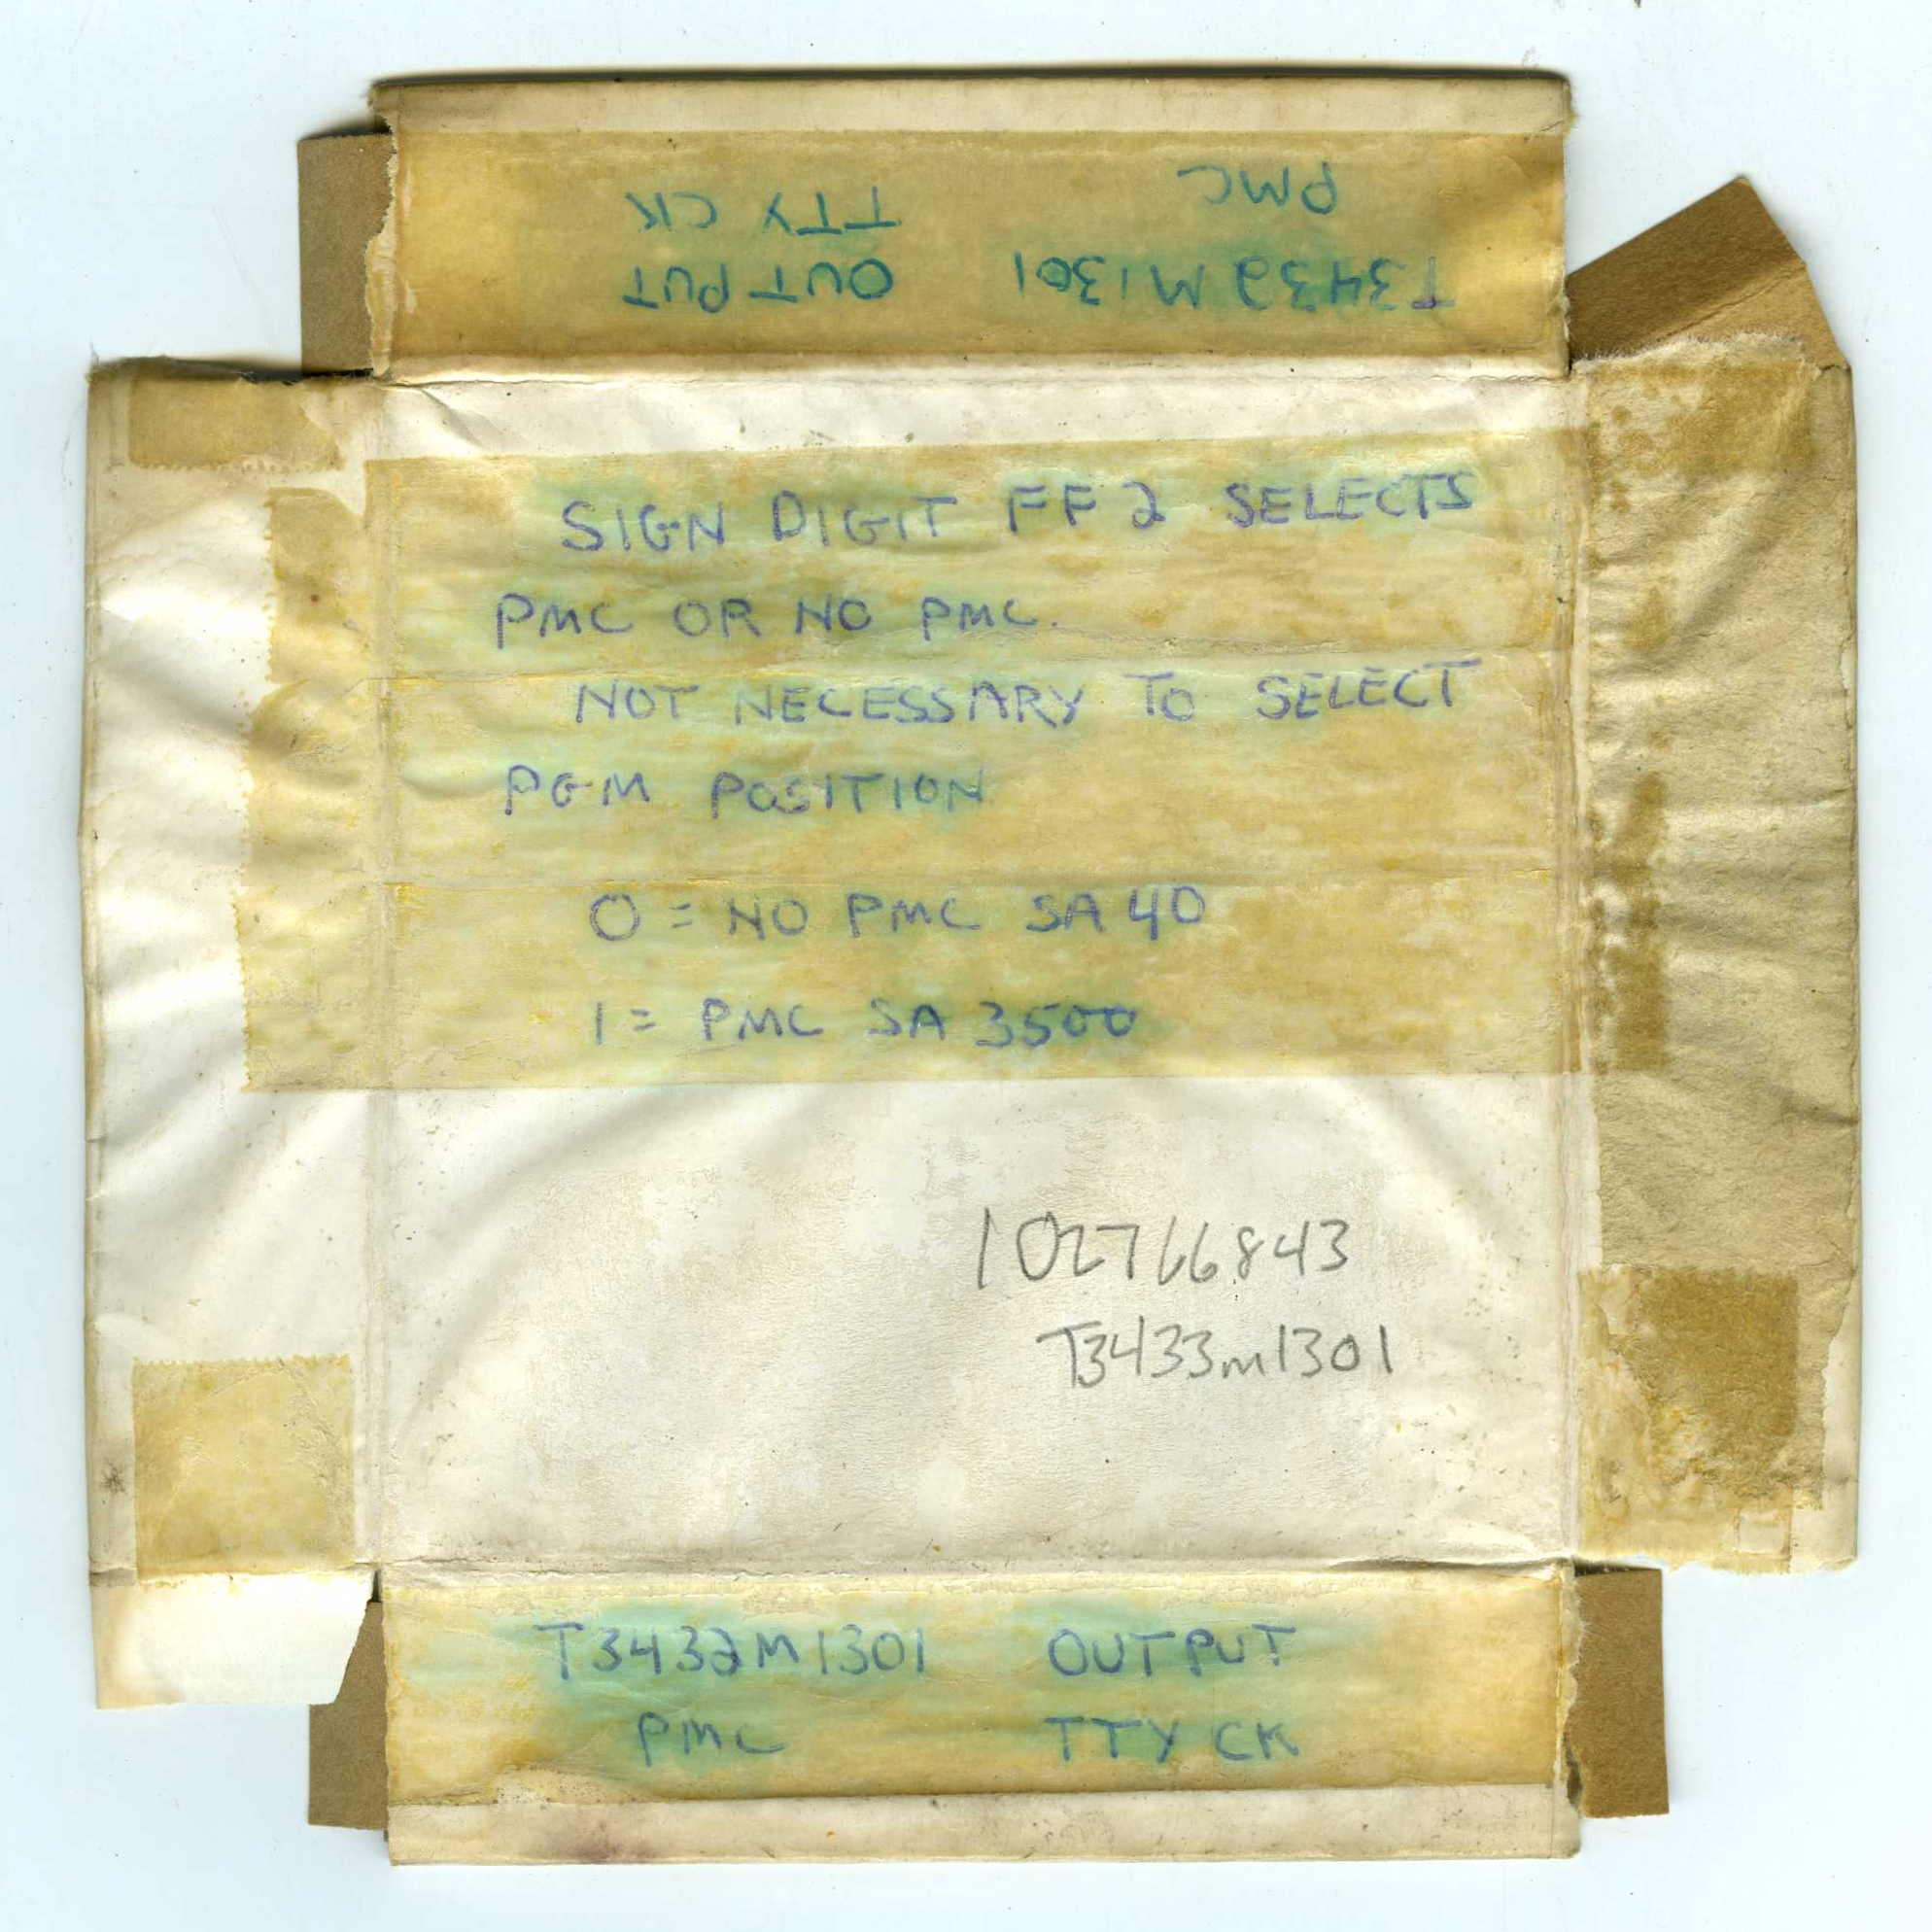 T3432M1301 OUTPUT
PMC TTY CK
SIGN DIGIT FF2 SELECTS
PMC OR NO PMC.
NOT NECESSARY TO SELECT
PGM POSITION
0 = NO PMC SA 40
1 = PMC SA 3500
102766843
T3433m1301
T3432M1301 OUTPUT
PMC TTY CK